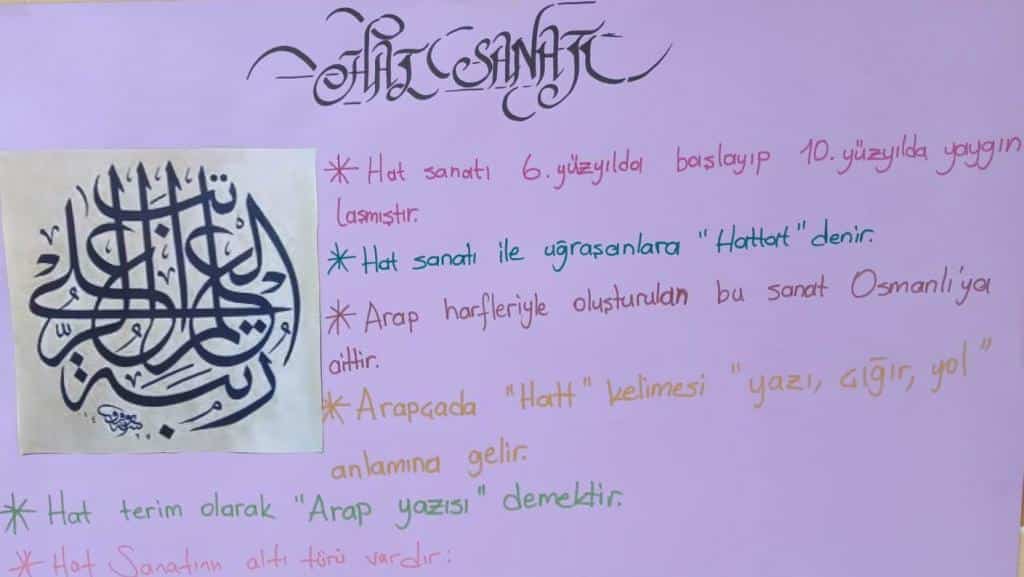 HAT SANATI
* Hat sanatı 6. yüzyılda başlayıp 10. yüzyılda yaygın
laşmıştır.
* Hat sanatı ile uğraşanlara "Hattat" denir.
* Arap harfleriyle oluşturulan bu sanat Osmanlı'ya
aittir.
* Arapçada "Hatt" kelimesi "yazı, çığır, yol"
anlamına gelir.
* Hat terim olarak "Arap yazısı" demektir.
* Hat Sanatının altı türü vardır: